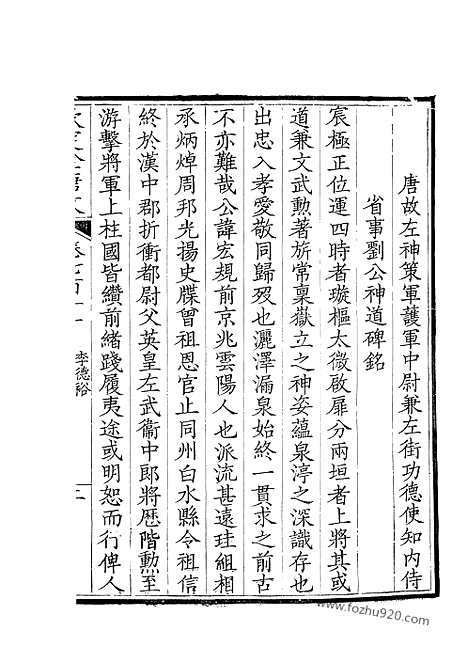 唐故左神策軍護軍中尉兼左街功德使知內侍
省事劉公神道碑銘
宸極正位運四時者璇樞太微啟扉分兩垣者上將其或
道兼文武勲著旂常稟嶽立之神姿蘊泉渟之深識存也
出忠入孝愛敬同歸歿也灑澤漏泉始終一貫求之前古
不亦難哉公諱宏規前京兆雲陽人也派流甚遠珪組相
承炳焯周邦光揚史牒曾祖恩官止同州白水縣令祖信
終於漢中郡折衝都尉父英皇左武衞中郎將歴階勲至
游擊將軍上柱國皆纘前緒踐履夷途或明恕而行俾人
李德裕
www.fozhu920.com